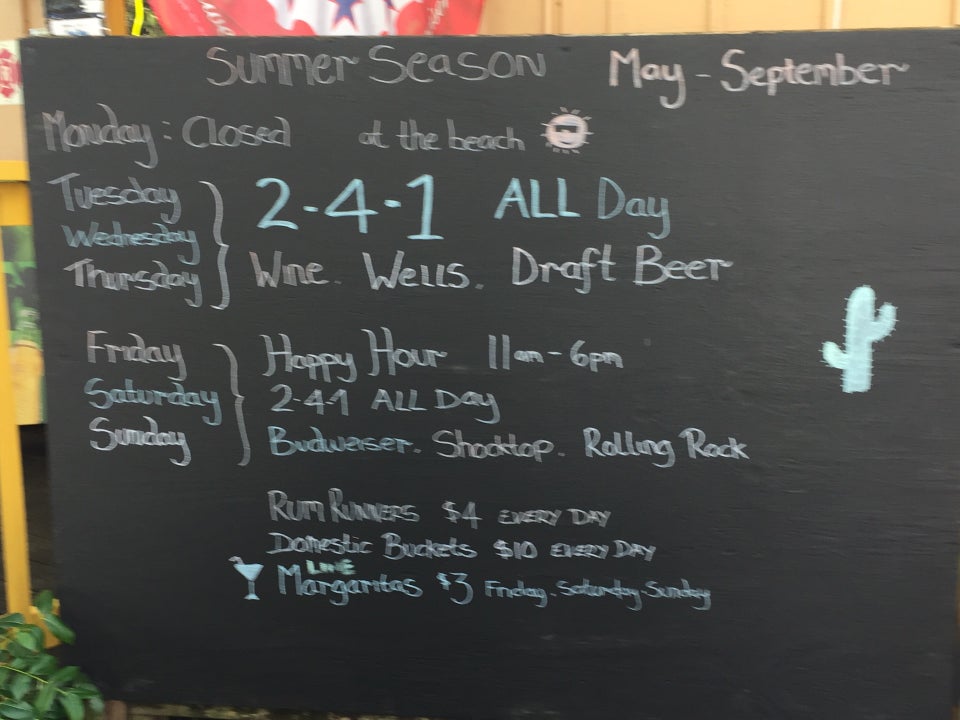 Summer Season May - September
Monday: Closed at the beach
Tuesday
Wednesday
Thursday
2-4-1 ALL Day
Wine. Wells. Draft Beer
Friday
Saturday
Sunday
Happy Hour 11am - 6pm
2-4-1 ALL Day
Budweiser. Shocktop. Rolling Rock
Rum Runners $4 EVERY DAY
Domestic Buckets $10 EVERY DAY
LIME
Margaritas $3 Friday. Saturday. Sunday